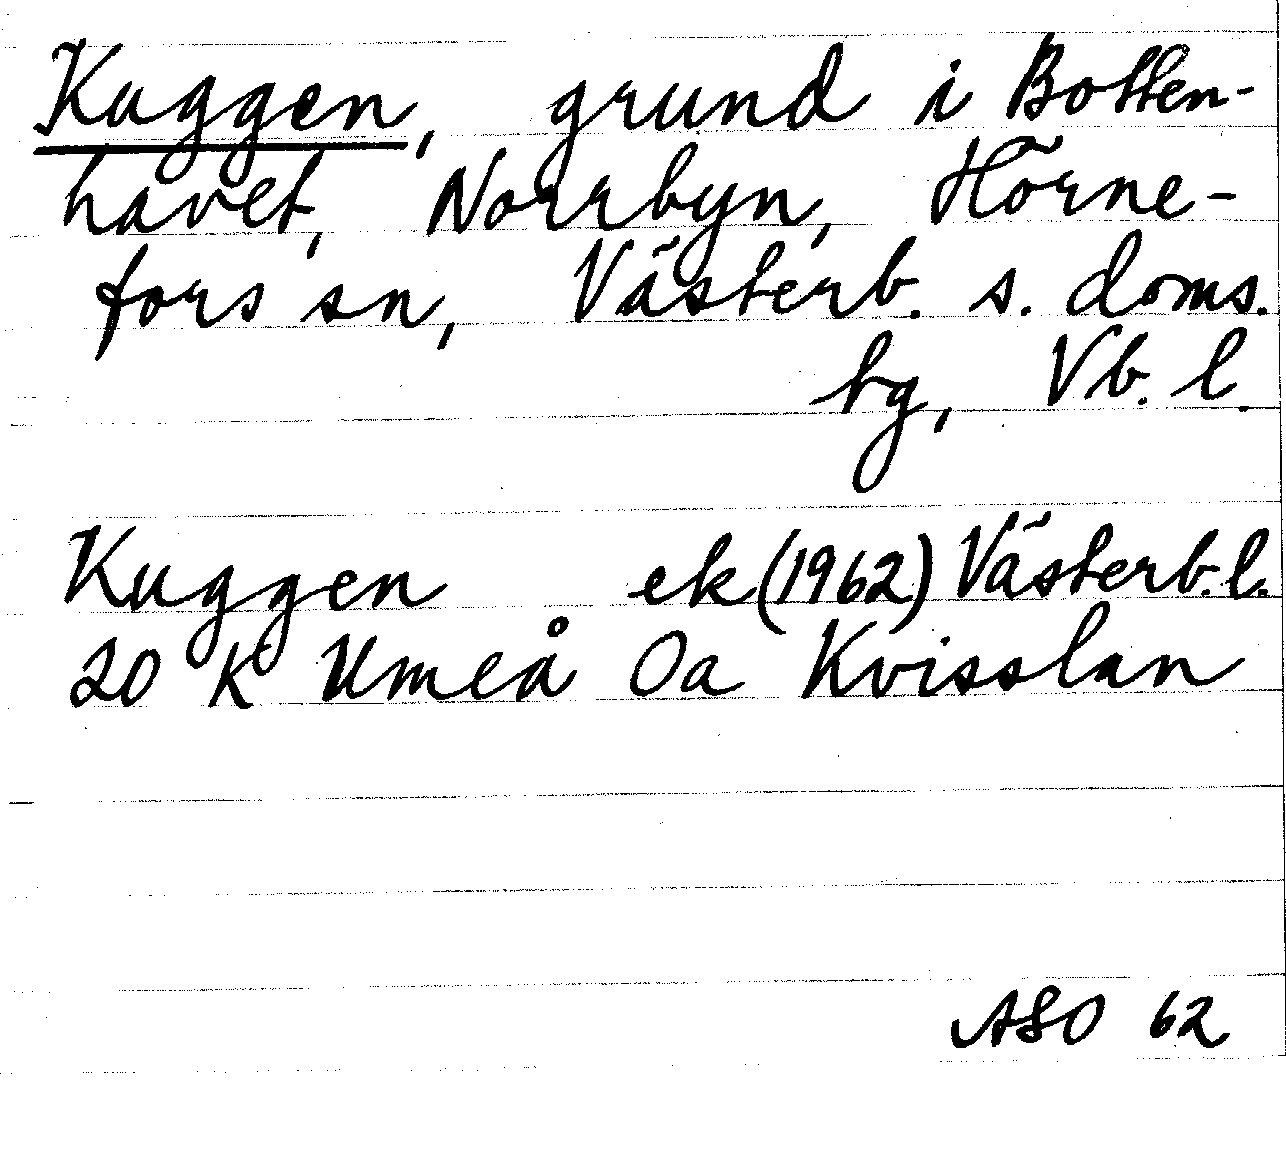 Kuggen, grund i Botten-
havet, Norrbyn, Hörne-
fors sn, Västerb. s. doms.
hg, Vb. l.
Kuggen ek (1962) Västerb. l.
20 K Umeå Oa Kvisslan
ASO 62